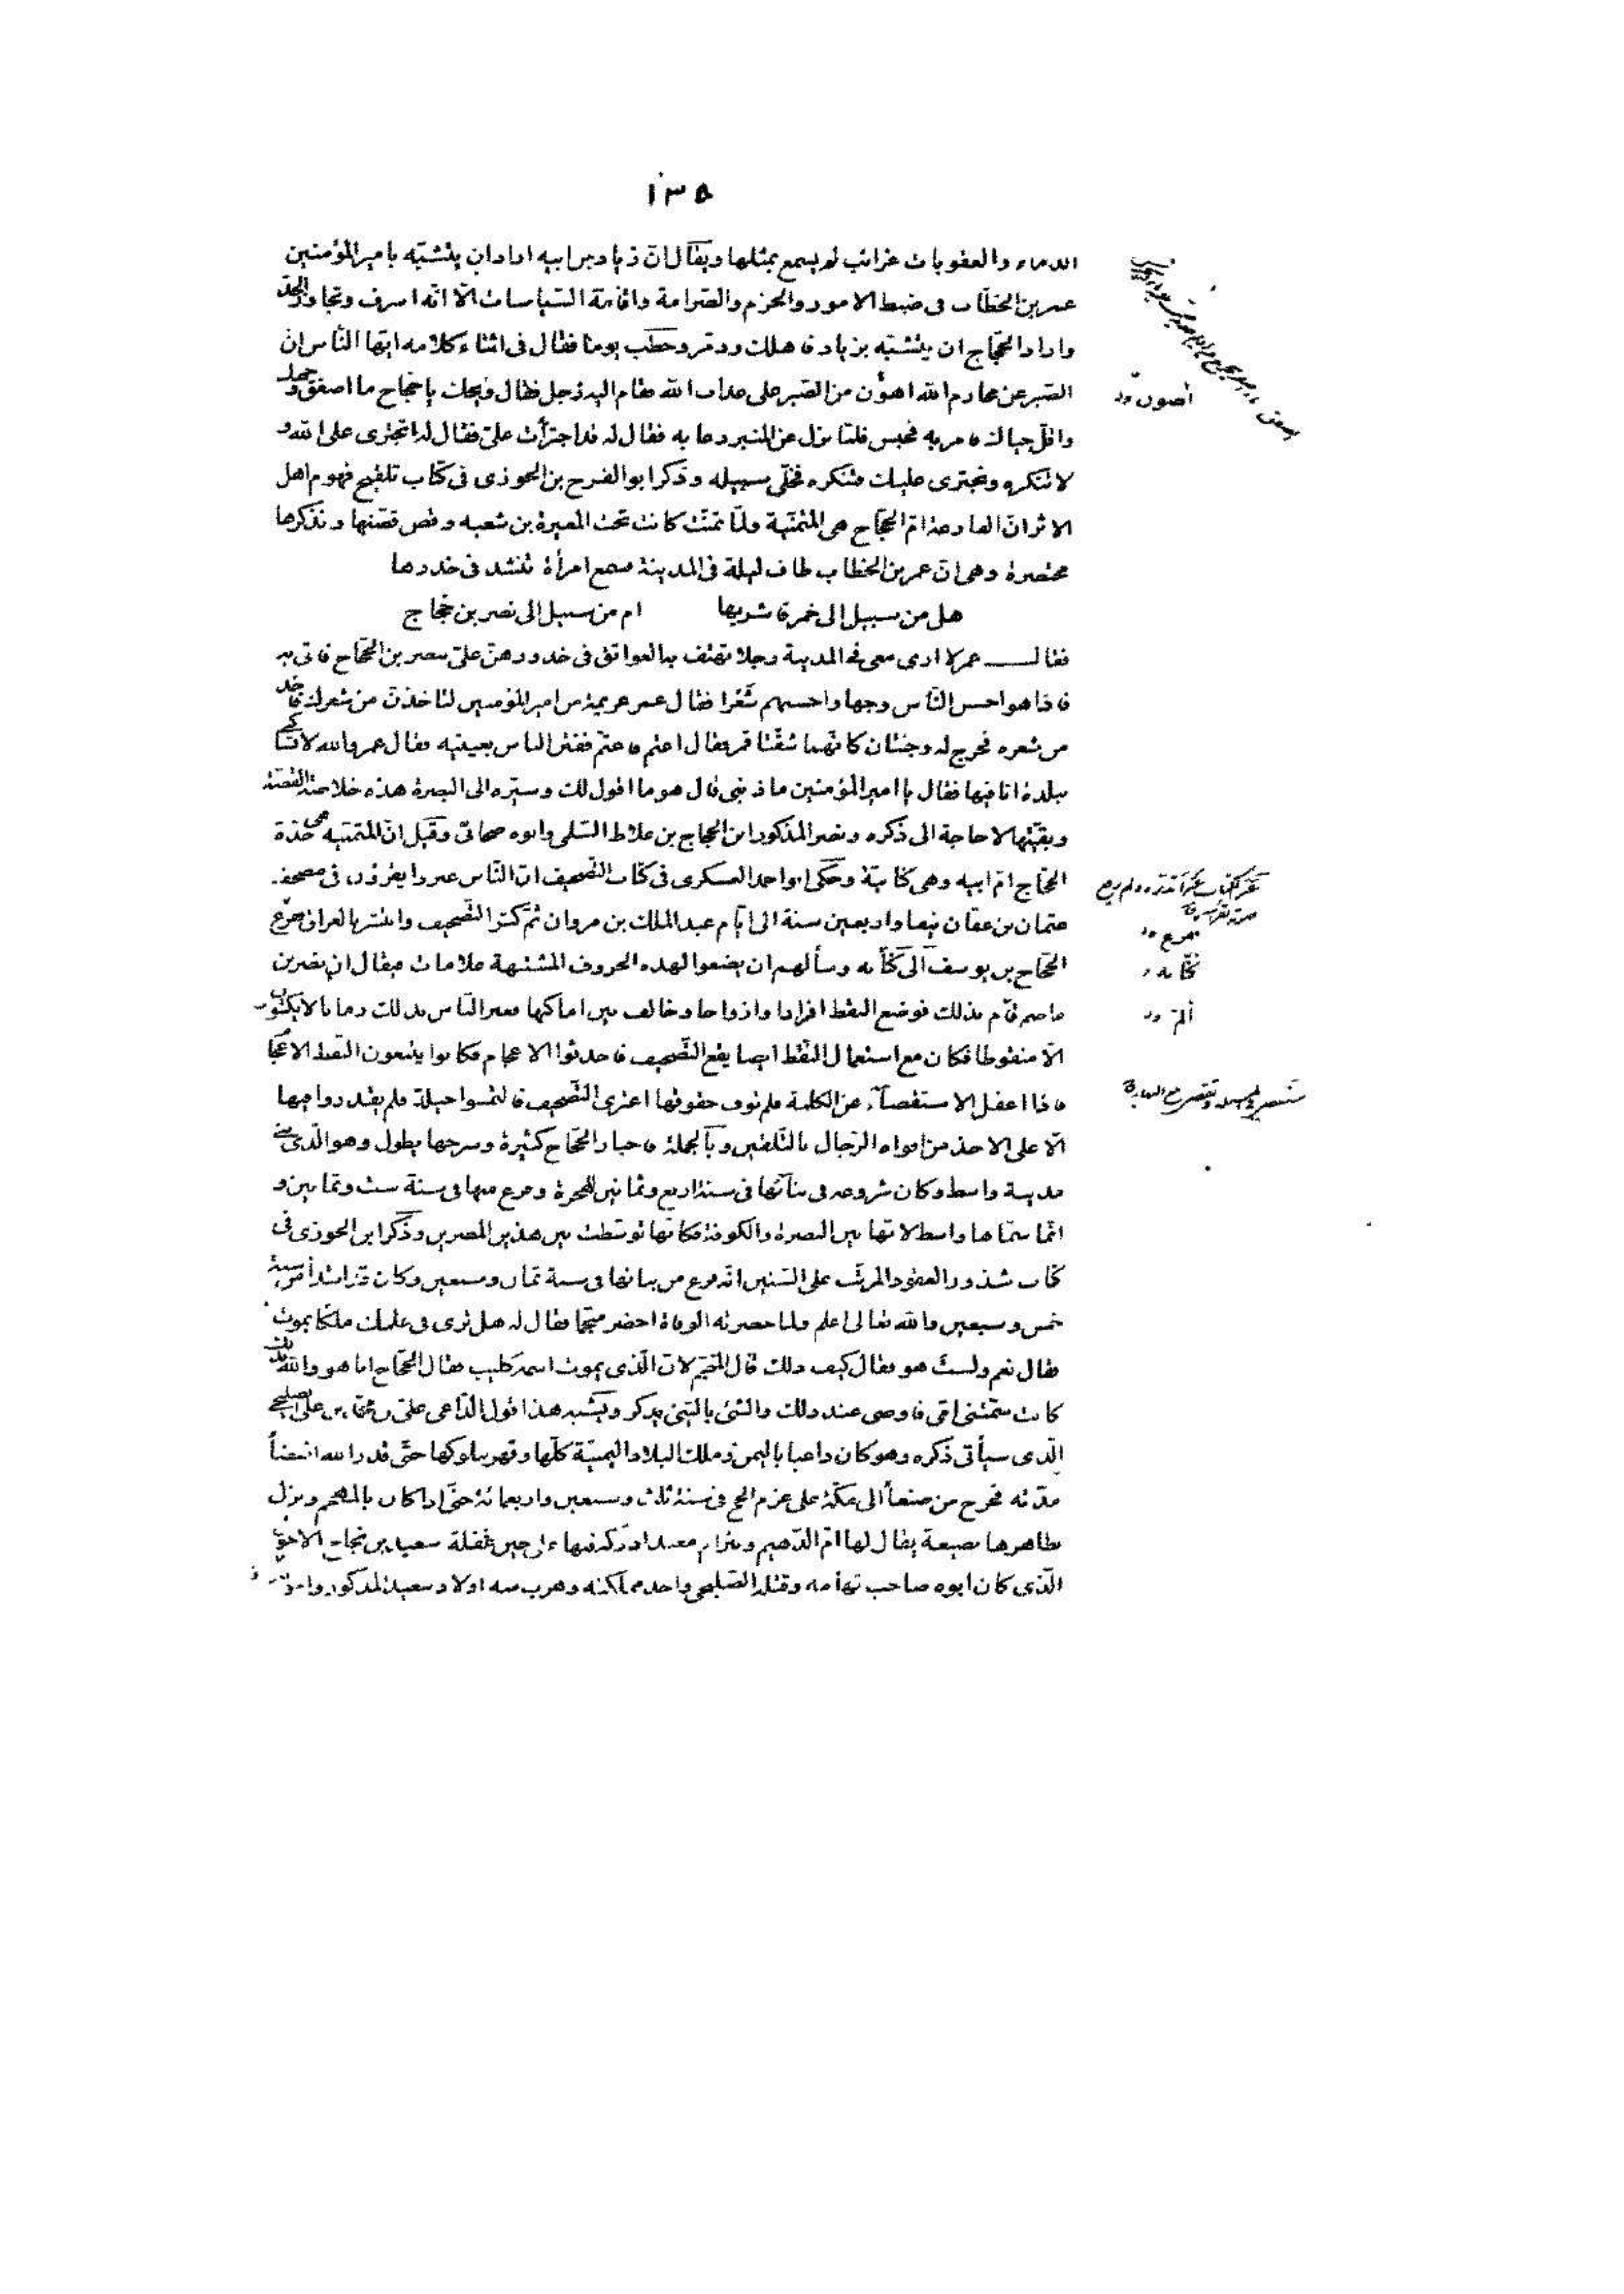 ١٣٥
الدماء والعقوبات غرائب لم يسمع بمثلها ويقال ان زياد بن ابيه اراد ان يتشبّه بامير المؤمنين
عمر بن الخطّاب فى ضبط الامور والحزم والصّرامة واقامة السّياسات الّا انّه اسرف وتجاوز الحدّ
واراد الحجّاج ان يتشبّه بزياد فاهلك ودمّر وخطب يوما فقال فى اثناء كلامه ايّها النّاس ان
الصّبر عن محارم الله اهون من الصّبر على عذاب الله فقام اليه رجل فقال ويحك يا حجّاج ما اصفق وجهك
واقلّ حياك فامر به فحبس فلمّا نزل عن المنبر دعا به فقال له لقد اجترأت علىّ فقال له اتجترى على الله و
لا تنكره ونجترى عليك فتنكره فخلّى سبيله وذكر ابو الفرج بن الجوزى فى كتاب تلقيح فهوم اهل
الاثر ان الفارعة امّ الحجّاج هى المتمنّية ولمّا تمنّت كانت تحت المغيرة بن شعبه وقص قصّتها ونذكرها
مختصرة وهى ان عمر بن الخطاب طاف ليلة فى المدينة فسمع امرأة تنشد فى خدرها
هل من سبيل الى خمر فاشربها ام من سبيل الى نصر بن حجاج
فقال عمر لا ارى معى فى المدينة رجلا تهتف به العواتق فى خدورهنّ علىّ بنصر بن الحجّاج فاتى به
فاذا هو احسن النّاس وجها واحسنهم شعرا فقال عمر عزيمة من امير المؤمنين لتاخذنّ من شعرك فاخذ
من شعره فخرج له وجنتان كانّهما شقّتا قمر فقال اعتم فاعتمّ ففتن الناس بعينيه فقال عمر والله لا تساكننى
ببلدة انا فيها فقال يا امير المؤمنين ما ذنبى قال هو ما اقول لك وسيّره الى البصرة هذه خلاصة القصّة
وبقيّتها لا حاجة الى ذكره ونصر المذكور ابن الحجاج بن علاط السّلمى وابوه صحابىّ وقيل انّ المتمنّيه هى جدّة
الحجّاج امّ ابيه وهى كنانيّة وحكى ابو احمد العسكرى فى كتاب التّصحيف انّ النّاس غبروا يقرؤن فى مصحف
عثمان بن عفّان نيفا واربعين سنة الى ايّام عبد الملك بن مروان ثمّ كثر التّصحيف وانتشر بالعراق ففزع
الحجّاج بن يوسف الى كتّابه وسألهم ان يضعوا لهذه الحروف المشتبهة علامات فيقال ان نصر بن
عاصم قام بذلك فوضع النقط افرادا وازواجا وخالف بين اماكنها فغبر النّاس بذلك زمانا لا يكتبون
الّا منقوطا فكان مع استعمال النّقط ايضا يقع التّصحيف فاحدثوا الاعجام فكانوا يتبعون النّقط الاعجام
فاذا اغفل الاستقصاء عن الكلمة فلم توف حقوقها اعترى التّصحيف فالتمسوا حيلة فلم يقدروا فيها
الّا على الاخذ من افواه الرّجال بالتّلقين وبالجملة فاخبار الحجّاج كثيرة وشرحها يطول وهو الّذى بنى
مدينة واسط وكان شروعه فى بنائها فى سنة اربع وثمانين للهجرة وفرغ منها فى سنة ست وثمانين و
انّما سمّاها واسط لانّها بين البصرة والكوفة فكانّها توسّطت بين هذين المصرين وذكر ابن الجوزى فى
كتاب شذور العقود المرتّب على السّنين انّه فرغ من بنائها فى سنة ثمان وسبعين وكان قد ابتدأ من سنة
خمس وسبعين والله تعالى اعلم ولما حضرته الوفاة احضر منجّما فقال له هل ترى فى علمك ملكا يموت
فقال نعم ولست هو فقال كيف ذلك قال المنجّم لان الّذى يموت اسمه كليب فقال الحجّاج انا هو والله بذلك
كانت سمّتنى امّى فاوصى عند ذلك والشّئ بالشّئ يذكر ويشبه هذا قول الدّاعى علىّ بن محمّد بن على الصليحى
الّذى سيأتى ذكره وهو كان داعيا باليمن وملك البلاد اليمنيّة كلّها وقهر ملوكها حتّى قدر الله انقضاء
مدّته فخرج من صنعاء الى مكّة على عزم الحج فى سنة ثلث وسبعين واربعمائة حتّى اذا كان بالمهجم ونزل
بظاهرها بضيعة يقال لها امّ الدّهيم وبئر ام معبد ادركه فيها على حين غفلة سعيد بن نجاح الاحول
الّذى كان ابوه صاحب تهامه وقتله الصّليحى واخذ مملكته وهرب منه اولاد سعيد المذكور واخوته